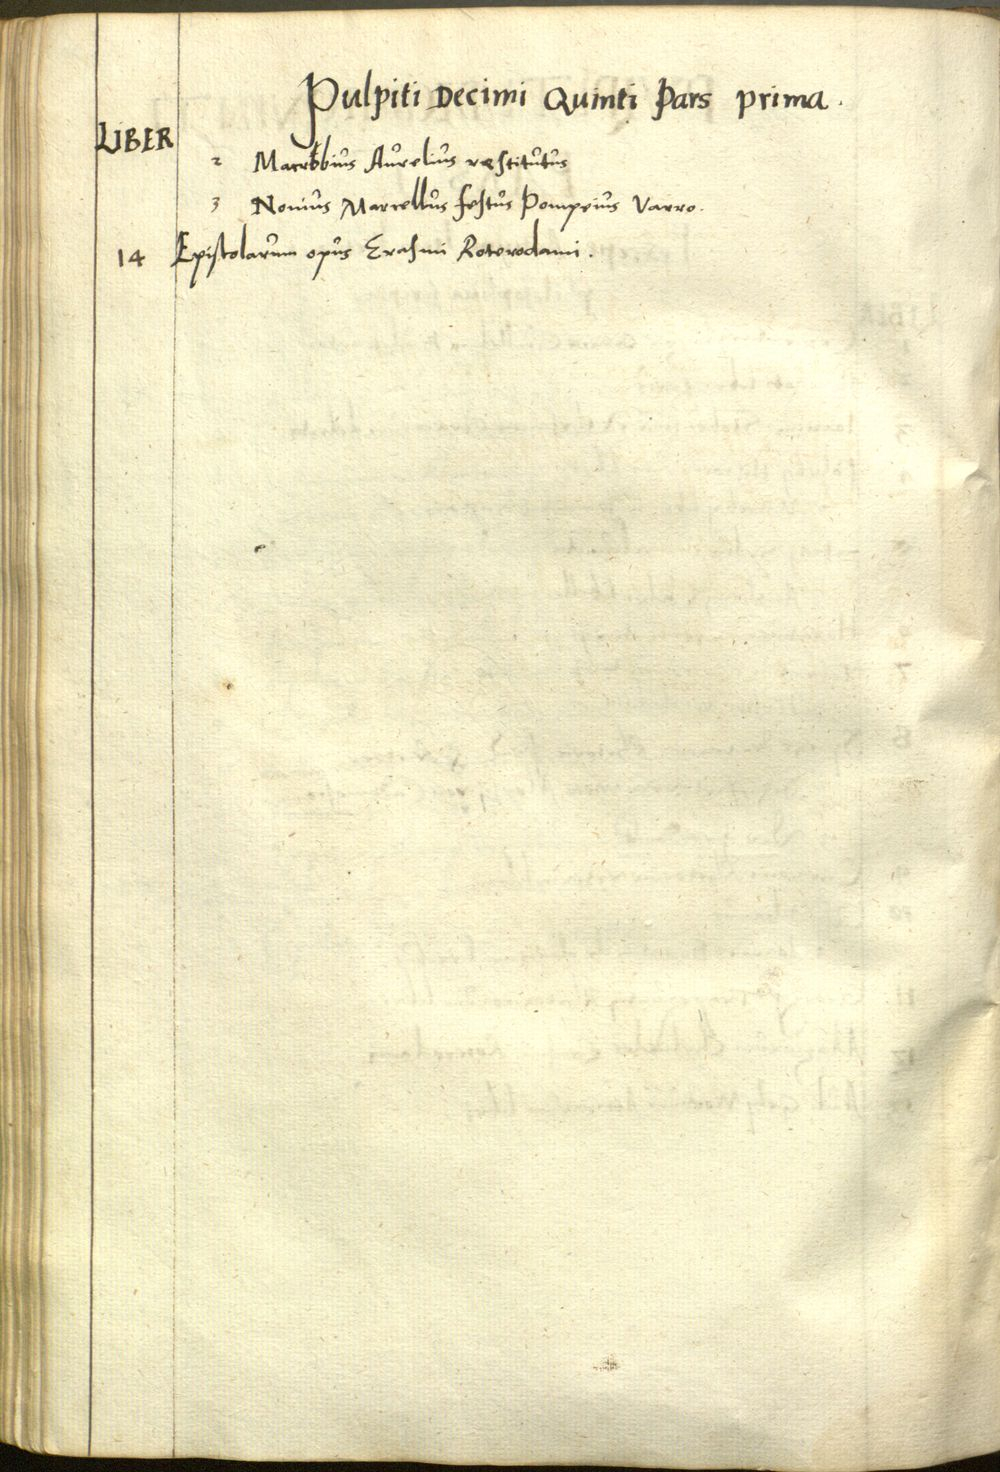 Pulpiti Decimi Quinti Pars prima.
LIBER
2 Macrobius Aurelius restitutus
3 Nonius Marcellus festus Pompeius Varro.
14 Epistolarum opus Erasmi Roterodami.